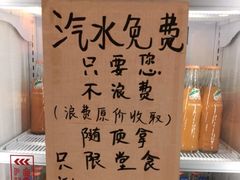 汽水免费
只要您
不浪费
(浪费原价收取)
随便拿
只限堂食